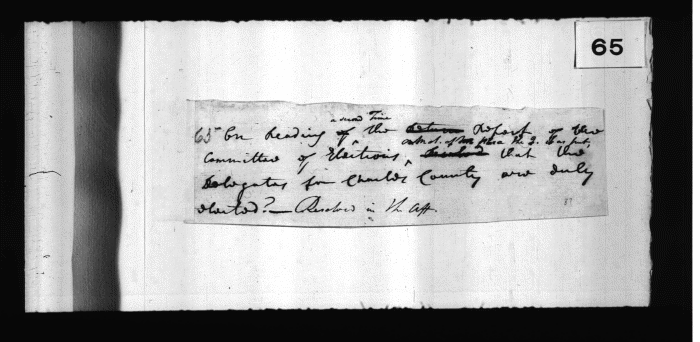 65
a second Time
65 On Reading of the Return Report of the
on Mot. of
Committee of Elections, Resolved that the
Delegates for Charles County are duly
elected? — Resolved in the Aff.